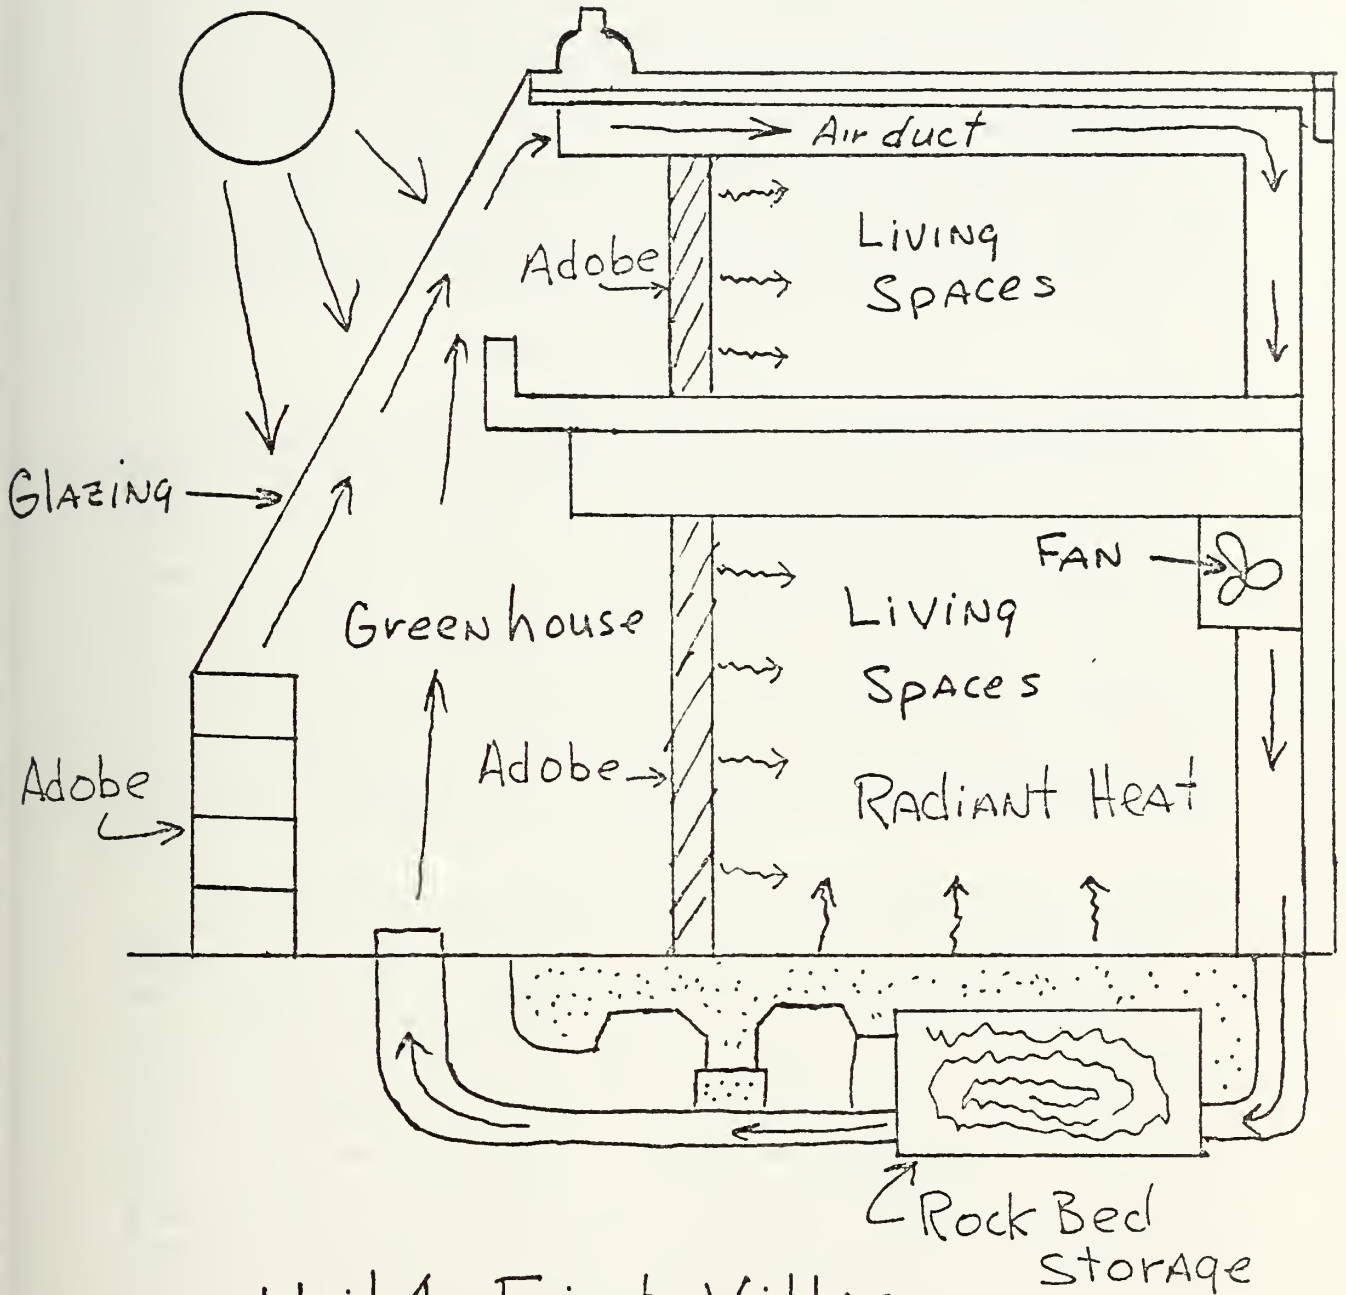 Air duct
Adobe
Living
Spaces
Glazing
Fan
Greenhouse
Living
Spaces
Adobe
Adobe
Radiant Heat
Rock Bed
Storage